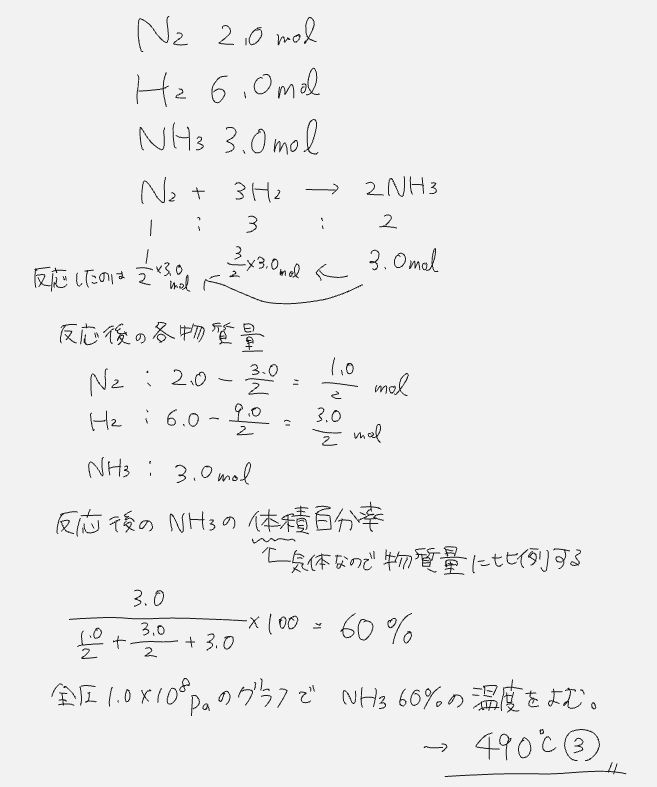 N₂ 2.0 mol
H₂ 6.0 mol
NH₃ 3.0 mol
N₂ + 3H₂ → 2NH₃
1 : 3 : 2
反応したのは 1/2×3.0 mol 3/2×3.0 mol ← 3.0 mol
反応後の各物質量
N₂ : 2.0 - 3.0/2 = 1.0/2 mol
H₂ : 6.0 - 9.0/2 = 3.0/2 mol
NH₃ : 3.0 mol
反応後の NH₃の 体積百分率
←気体なので 物質量に比例する
3.0/(1.0/2 + 3.0/2 + 3.0) × 100 = 60 %
全圧 1.0×10⁸ Pa のグラフで NH₃ 60%の 温度をよむ。
→ 490℃ ③